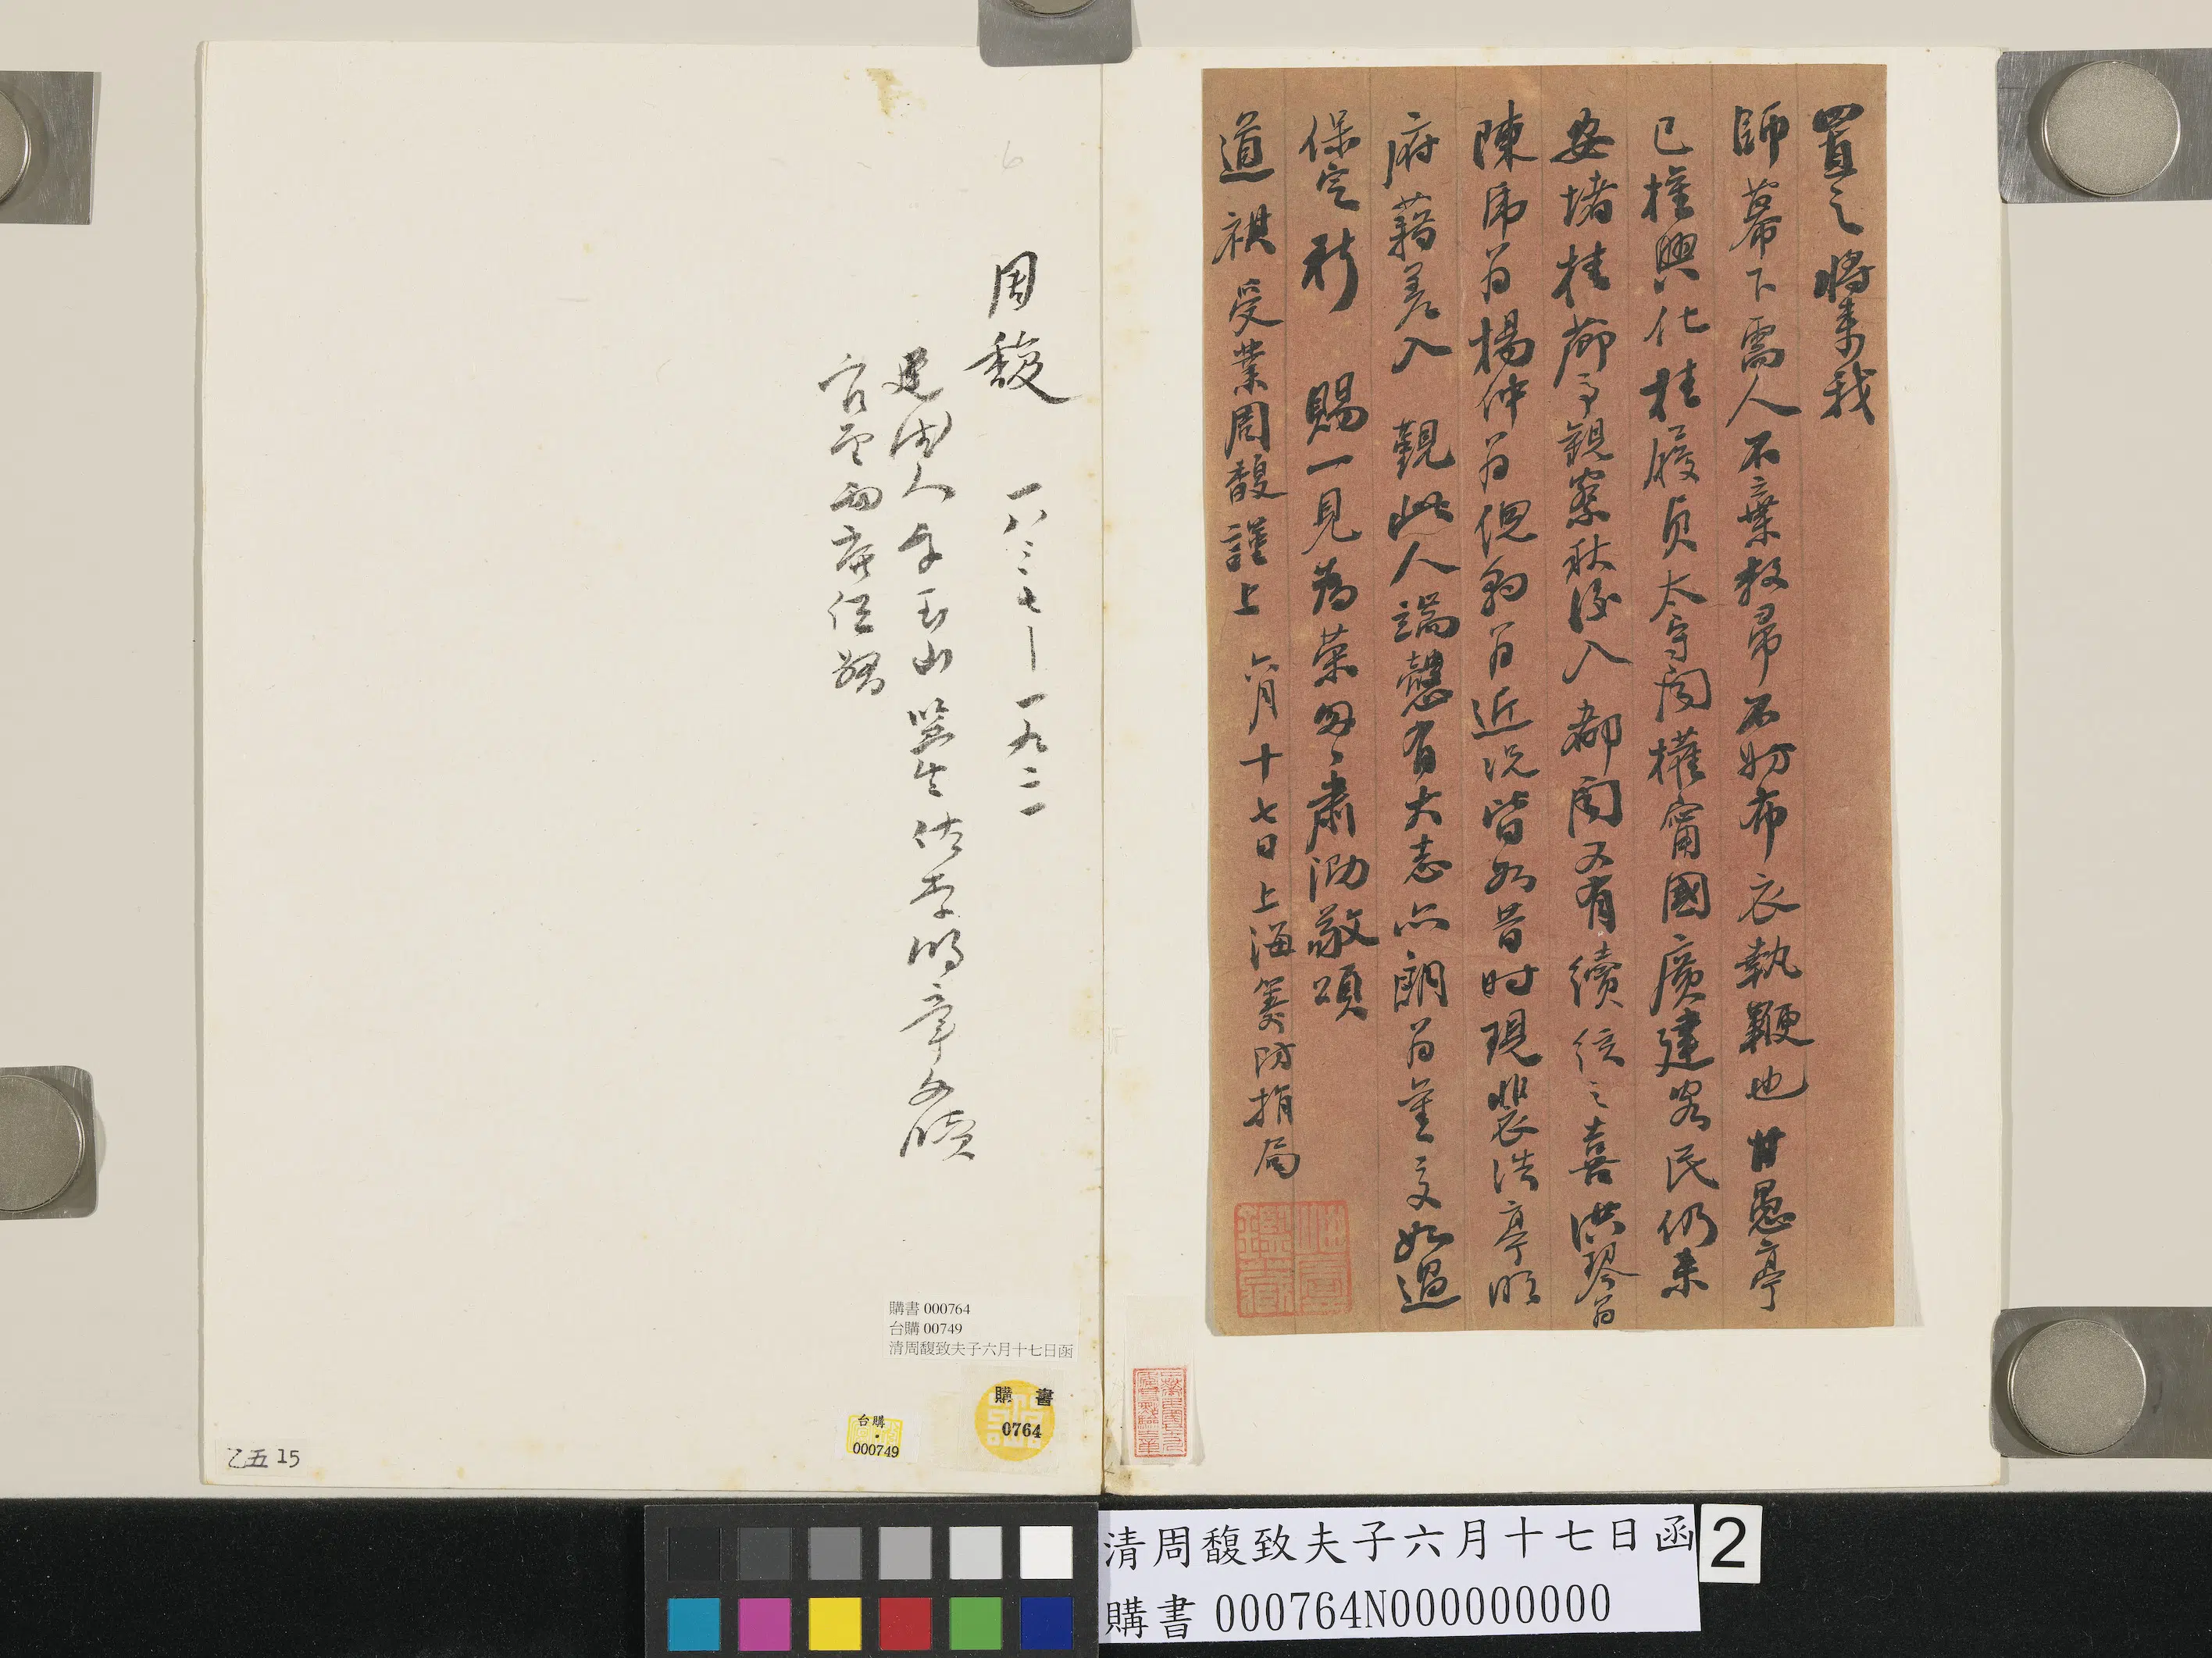 置之將來我
師幕下需人不棄教帚不妨布衣執鞭也甘愚亭
已權興化桂履貞太守聞權甯國廣建客民仍未
安堵桂薌亭觀察秋後入都聞又有續絃之喜洪琴翁
陳虎翁楊仲翁倪豹翁近況皆如昔時現裴浩亭明
府藉差入覲此人端慤有大志亦朗翁至交如過
保定祈賜一見為榮匆匆肅泐敬頌
道祺受業周馥謹上六月十七日上海籌防捐局
周馥一八三七—一九二一
建德人字玉山監生佐李鴻章文牘
官至兩廣總督
購書 000764
台購 00749
清周馥致夫子六月十七日函
購書
0764
台購
000749
乙五 15
清周馥致夫子六月十七日函
2
購書 000764N000000000